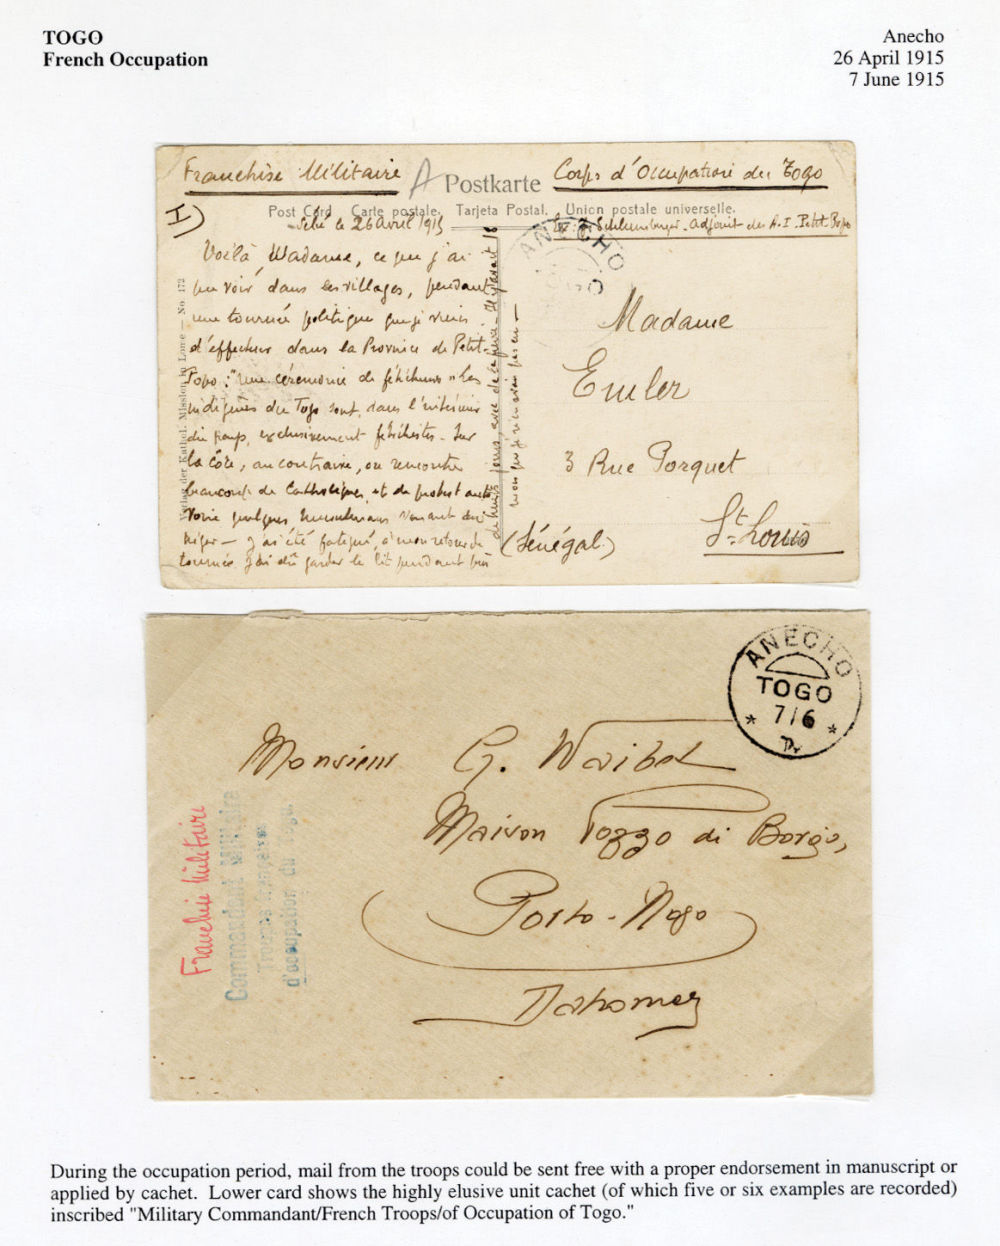 TOGO
French Occupation
Anecho
26 April 1915
7 June 1915
Franchise Militaire
A
Postkarte
Corps d'Occupation du Togo
Post Card Carte postale. Tarjeta Postal. Union postale universelle.
le 26 avril 1915
adjoint du A.I. Petit Popo
I)
ANECHO
Voilà, Madame, ce que j'ai
pu voir dans les villages, pendant
une tournée politique que je viens
d'effectuer dans la Province de Petit
Popo : "une cérémonie de féticheurs". Les
indigènes du Togo sont, dans l'intérieur
du pays, exclusivement fétichistes. Sur
la côte, au contraire, on rencontre
beaucoup de Catholiques, et de protestants
voire quelques musulmans venant du
Niger — J'ai été fatigué, à mon retour de
tournée. J'ai dû garder le lit pendant près
de huit jours, avec de la fièvre.
Verlag der Kathol. Mission in Lome — No. 172
Madame
Emler
3 Rue Porquet
St. Louis
(Sénégal)
ANECHO
TOGO
7/6
Monsieur G. Waibel
Maison Pozzo di Borgo,
Porto-Novo
Dahomey
Franchise Militaire
Commandant Militaire
Troupes françaises
d'occupation du Togo.
During the occupation period, mail from the troops could be sent free with a proper endorsement in manuscript or
applied by cachet. Lower card shows the highly elusive unit cachet (of which five or six examples are recorded)
inscribed "Military Commandant/French Troops/of Occupation of Togo."